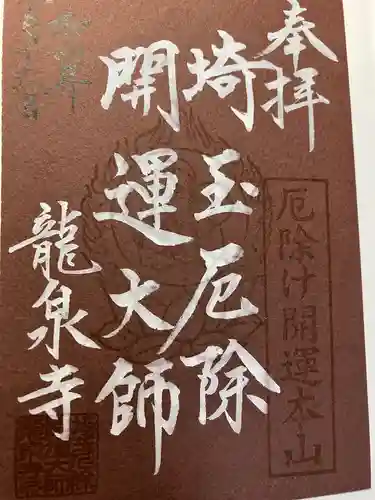 奉拝
厄除け開運本山
埼玉厄除
開運大師
龍泉寺